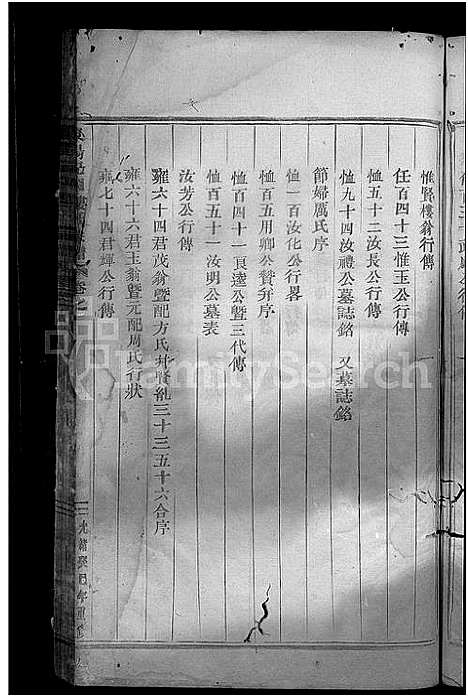 惟賢樓翁行傳
任百四十三惟玉公行傳
恤五十二汝長公行傳
恤九十四汝禮公墓誌銘 又墓誌銘
節婦厲氏序
恤一百汝化公行畧
恤百五用卿公贊并序
恤百四十一良達公暨三代傳
恤百五十一汝明公墓表
汝芳公行傳
雍六十四君茂翁暨配方氏并賢胤三十三五十六合序
雍六十六君玉翁暨元配周氏行狀
雍七十四君輝公行傳
FamilySearch